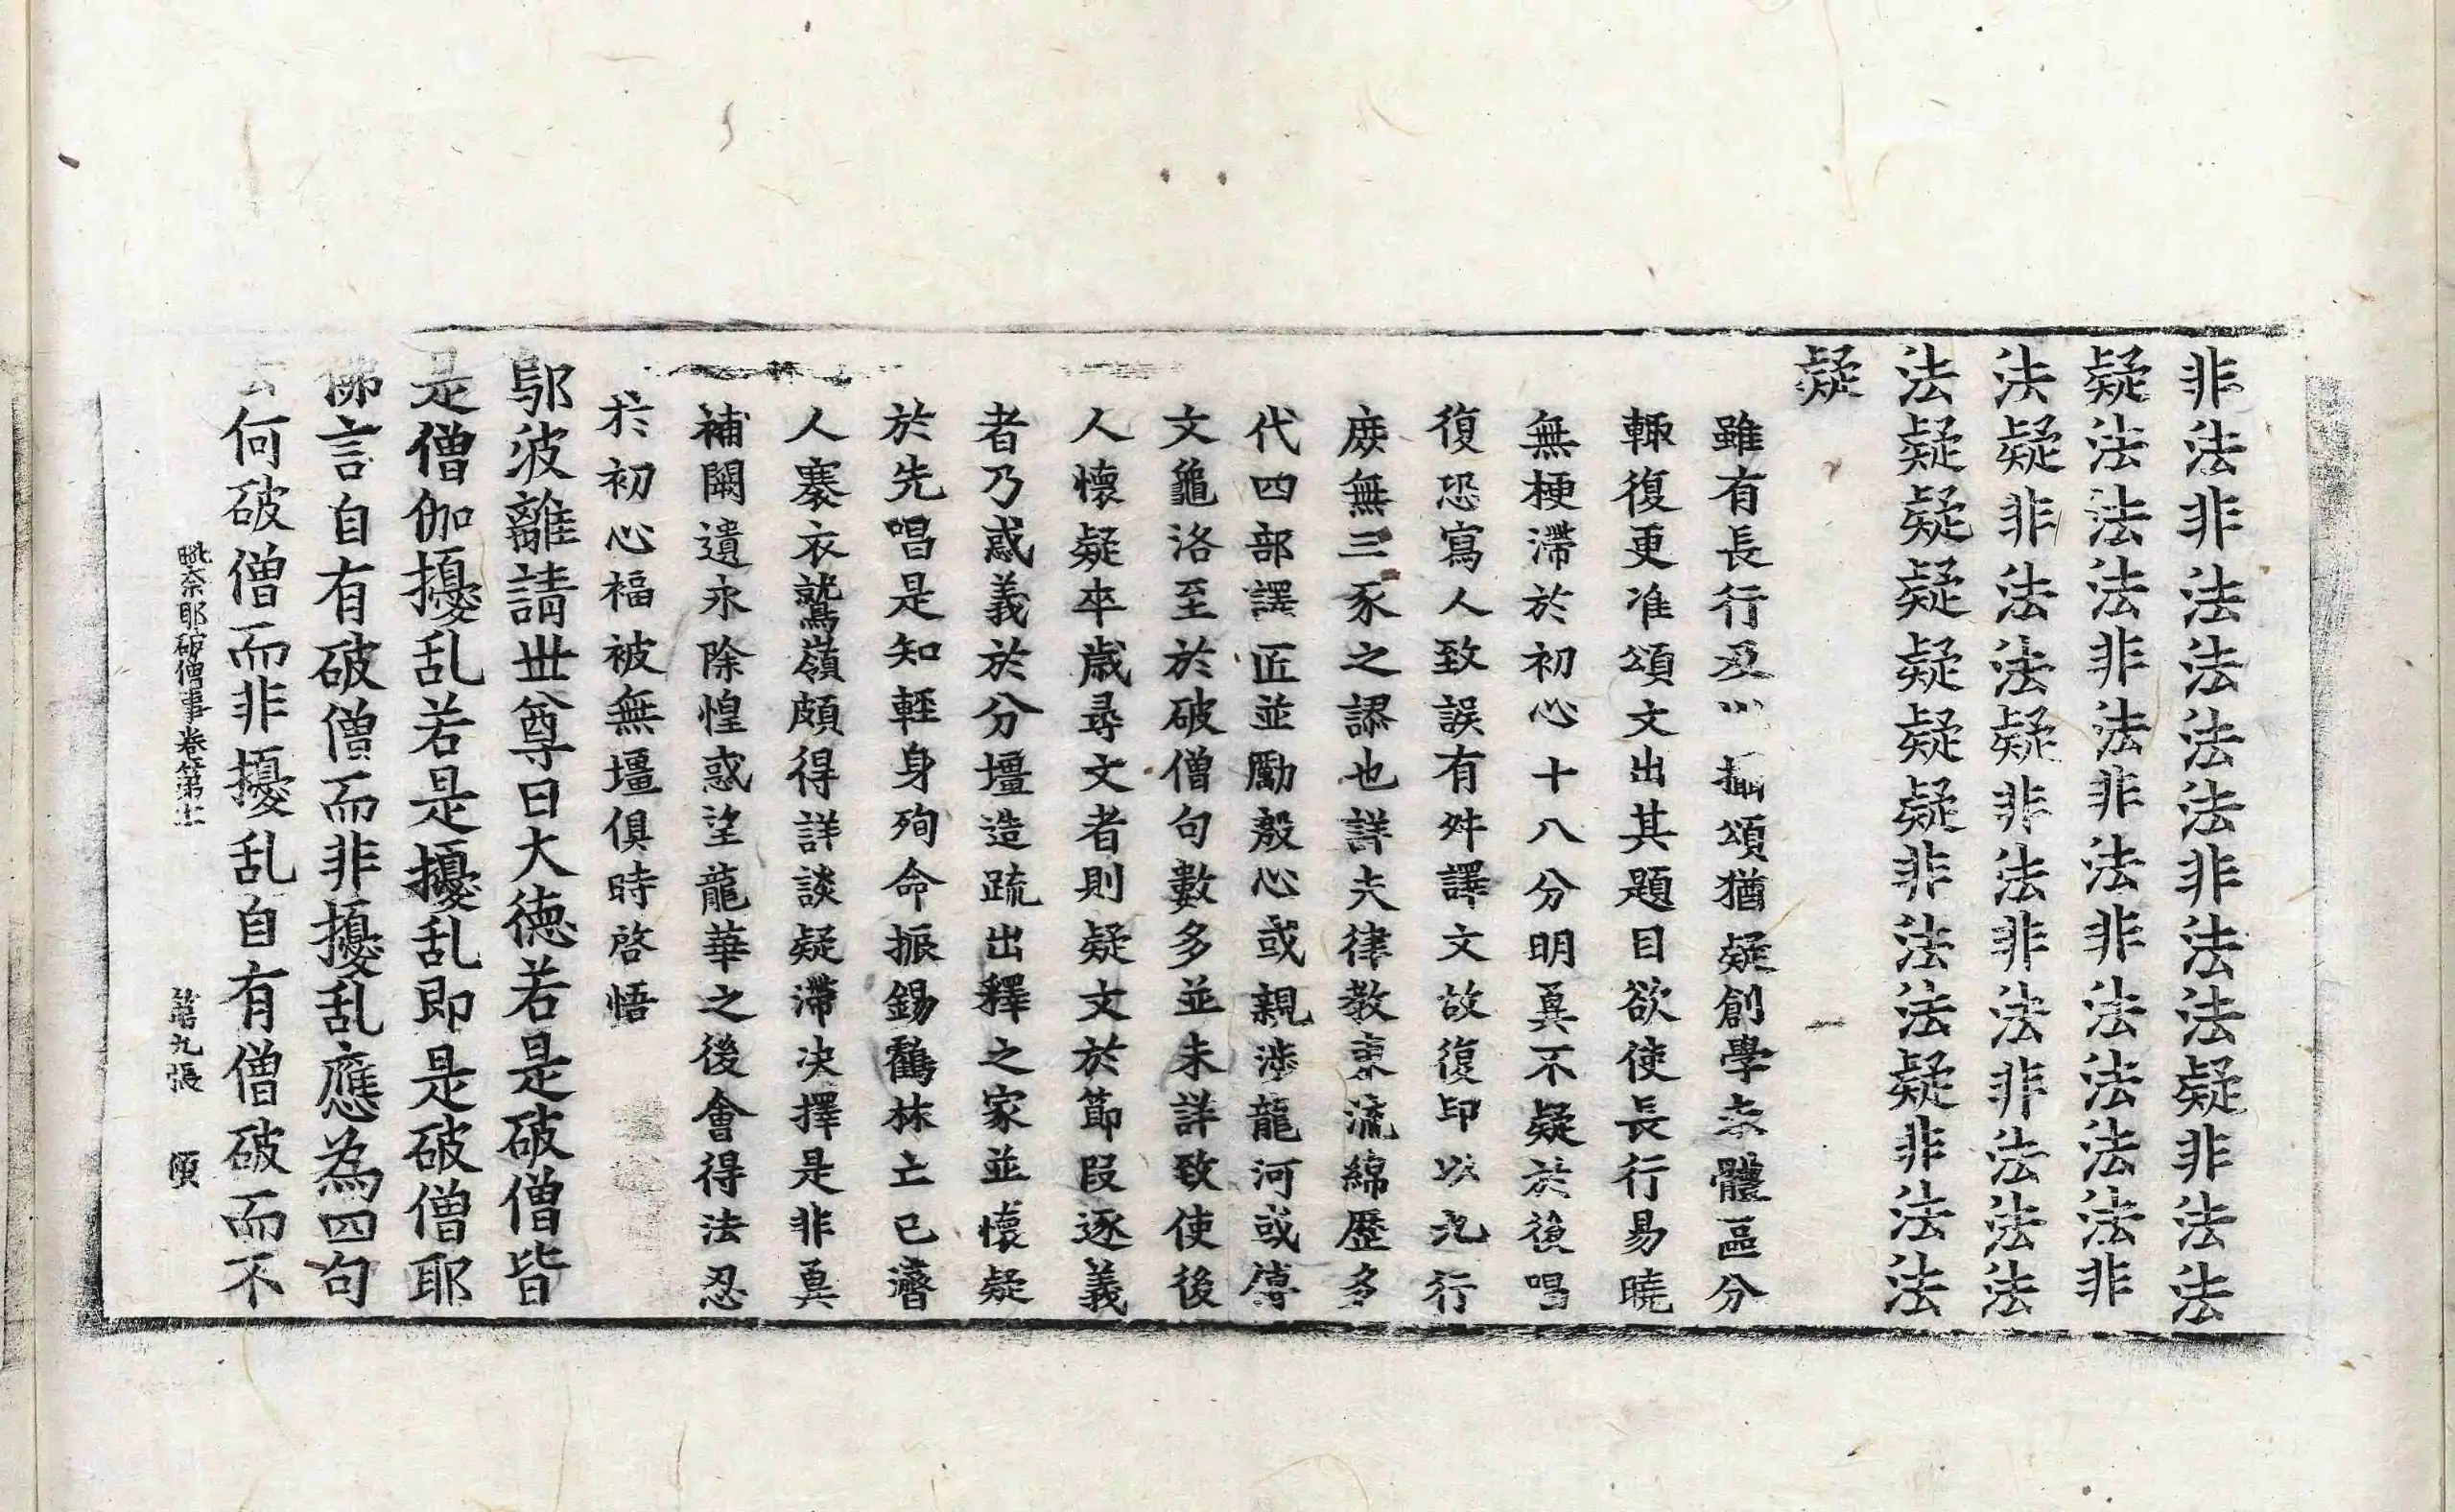 非法非法法法法非法法疑非法法
疑法法法非法非法非法法法法非
法疑非法法疑非法非法非法法法
法疑疑疑疑疑疑非法法疑非法法
疑
雖有長行及以攝頌猶疑創學未體區分
輙復更准頌文出其題目欲使長行易曉
無梗滯於初心十八分明真不疑於後唱
復恐寫人致誤有舛譯文故復印以九行
庶無三豕之謬也詳夫律教東流綿歷多
代四部譯匠並勵殷心或親涉龍河或傳
文龜洛至於破僧句數多並未詳致使後
人懷疑卒歲尋文者則疑文於節段逐義
者乃惑義於分壃造疏出釋之家並懷疑
於先唱是知輕身殉命振錫鶴林亡己濟
人褰衣鷲嶺頗得詳談疑滯决擇是非真
補闕遺永除惶惑望龍華之後會得法忍
於初心福被無壃俱時啓悟
鄔波離請世尊曰大德若是破僧皆
是僧伽擾乱若是擾乱即是破僧耶
佛言自有破僧而非擾乱應為四句
云何破僧而非擾乱自有僧破而不
毗奈耶破僧事卷第十一 第九張